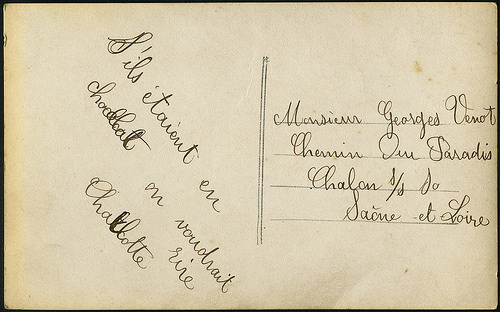 S'ils étaient en
chocolat on voudrait
Charlotte rire
Monsieur Georges Venot
Chemin Du Paradis
Chalon s/s So
Saône et Loire